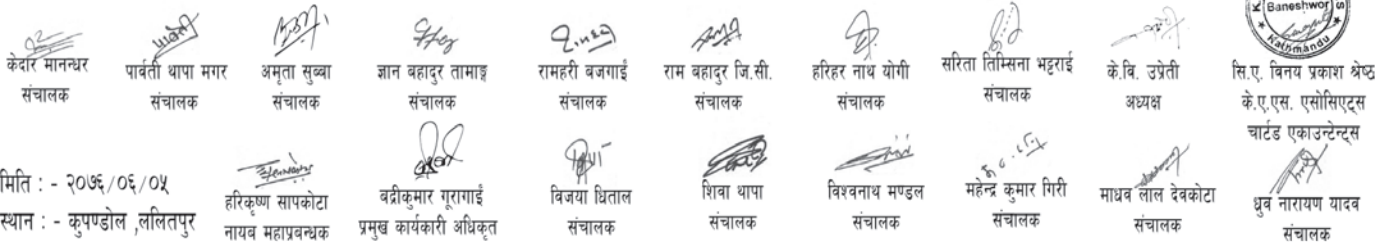 Baneshwor
Kathmandu
केदार मानन्धर
संचालक
पार्वती थापा मगर
संचालक
अमृता सुब्बा
संचालक
ज्ञान बहादुर तामाङ्ग
संचालक
रामहरी बजगाईं
संचालक
राम बहादुर जि.सी.
संचालक
हरिहर नाथ योगी
संचालक
सरिता तिम्सिना भट्टराई
संचालक
के.बि. उप्रेती
अध्यक्ष
सि.ए. विनय प्रकाश श्रेष्ठ
के.ए.एस. एसोसिएट्स
चार्टड एकाउन्टेन्ट्स
मिति : - २०७६/०६/०५
स्थान : - कुपण्डोल ,ललितपुर
हरिकृष्ण सापकोटा
नायव महाप्रबन्धक
बद्रीकुमार गूरागाईं
प्रमुख कार्यकारी अधिकृत
विजया धिताल
संचालक
शिवा थापा
संचालक
विश्वनाथ मण्डल
संचालक
महेन्द्र कुमार गिरी
संचालक
माधव लाल देवकोटा
संचालक
ध्रुव नारायण यादव
संचालक